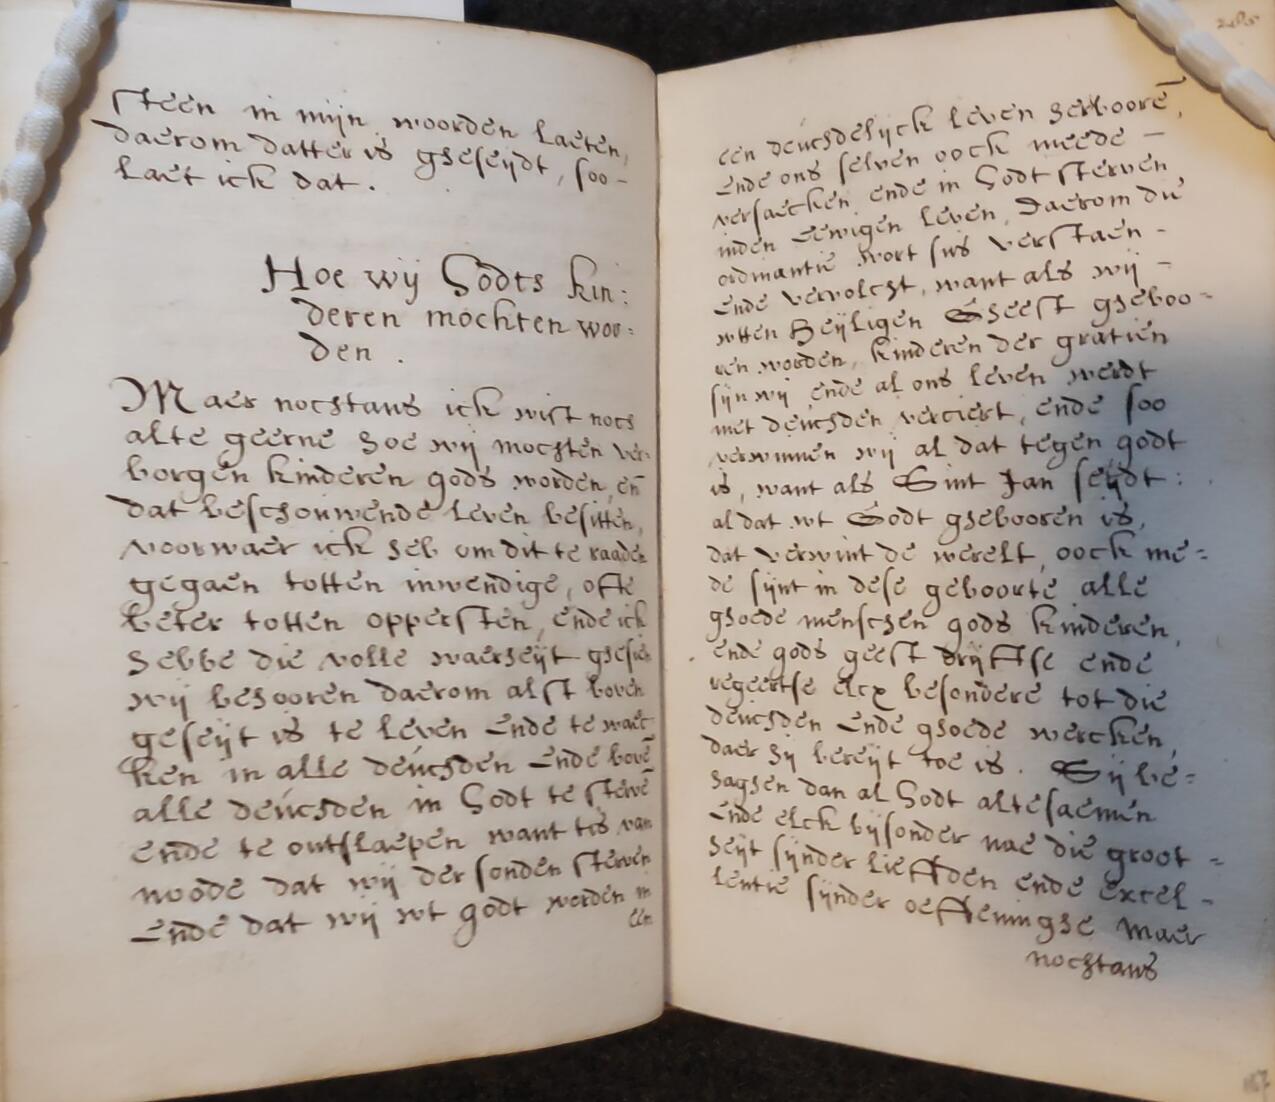 steen in mijn woorden laeten,
daerom datter is gheseijdt, soo-
laet ick dat.
Hoe wij Godts kin:
deren mochten wor:
den.
Maer nochtans ick wist noch
alte geerne hoe wij mochten ver:
borgen kinderen gods worden, eñ
dat beschouwende leven besitten,
voorwaer ick heb om dit te raaden
gegaen totten inwendige, ofte
beter totten oppersten, ende ick
hebbe die volle waerheijt ghesien
wij behooren daerom alst boven
geseijt is te leven ende te waec
ken in alle deuchden ende bovē
alle deuchden in Godt te stervē
ende te ontslaepen want tis van
noode dat wij der sonden sterven
ende dat wij wt godt werden in
een
2485
een deuchdelijck leven herboorē,
ende ons selven oock meede -
versaecken ende in Godt sterven
inden eewigen leven, daerom die
ordinantie wort sus verstaen -
ende vervolcht, want als wij -
wtten heijligen Gheest gheboo-
ren worden, kinderen der gratien
sijn wij ende al ons leven werdt
met deuchden verciert, ende soo
verwinnen wij al dat tegen godt
is, want als Sint Jan seijdt:
al dat wt Godt ghebooren is,
dat verwint de werelt, oock me=
de sijnt in dese geboorte alle
ghoede menschen gods kinderen,
ende gods geest drijftse ende
regeertse elcx besondere tot die
deuchden ende ghoede wercken,
daer sij bereijt toe is. Sij be=
haghen dan al Godt altesaemen
ende elck bijsonder nae die groot=
heijt sijnder liefden ende excel-
lentie sijnder oeffeninghe maer
nochtans
187